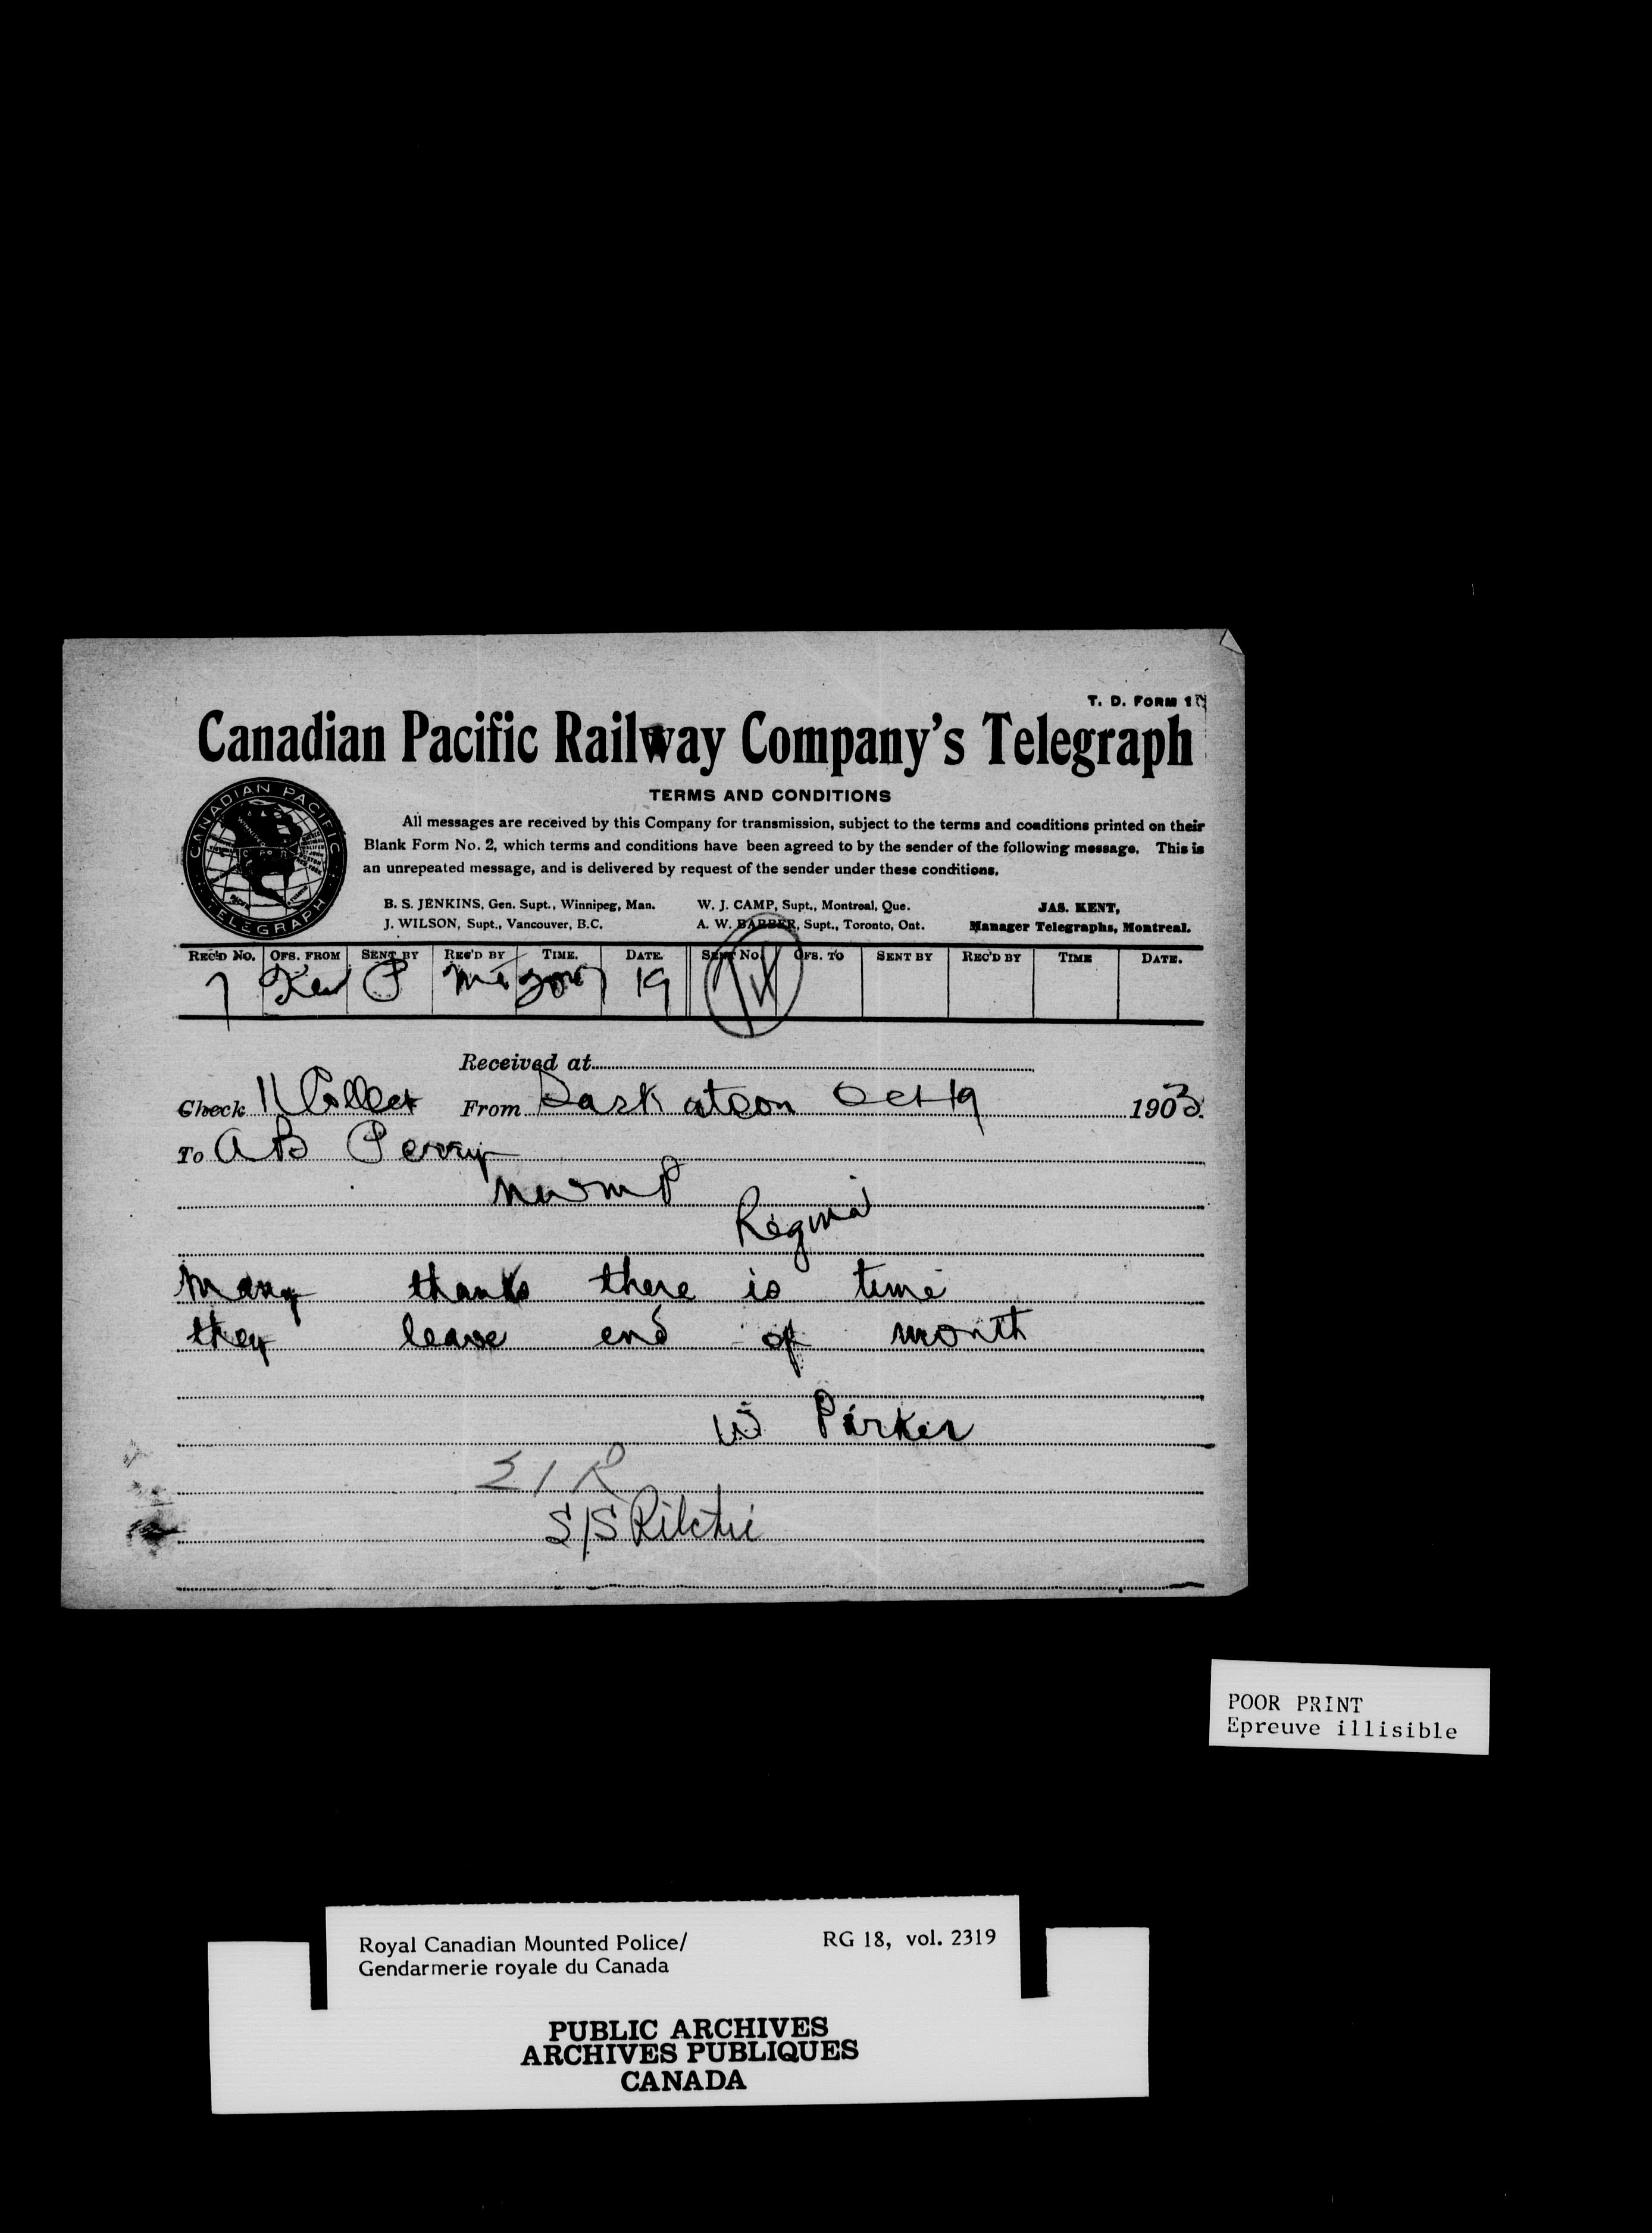 T. D. FORM 1
Canadian Pacific Railway Company's Telegraph
TERMS AND CONDITIONS
All messages are received by this Company for transmission, subject to the terms and conditions printed on their
Blank Form No. 2, which terms and conditions have been agreed to by the sender of the following message. This is
an unrepeated message, and is delivered by request of the sender under these conditions.
CANADIAN PACIFIC TELEGRAPH
B. S. JENKINS, Gen. Supt., Winnipeg, Man. W. J. CAMP, Supt., Montreal, Que. JAS. KENT,
J. WILSON, Supt., Vancouver, B.C. A. W. BARBER, Supt., Toronto, Ont. Manager Telegraphs, Montreal.
REC'D No. OFS. FROM SENT BY REC'D BY TIME. DATE. SENT No. OFS. TO SENT BY REC'D BY TIME DATE.
7 P 19
Received at
Check 11 Collect From Saskatoon Oct 19 1903.
To A B Perry
NWMP
Regina
Many thanks there is time
they leave end of month
W Parker
S/S Ritchie
POOR PRINT
Epreuve illisible
Royal Canadian Mounted Police/ RG 18, vol. 2319
Gendarmerie royale du Canada
PUBLIC ARCHIVES
ARCHIVES PUBLIQUES
CANADA